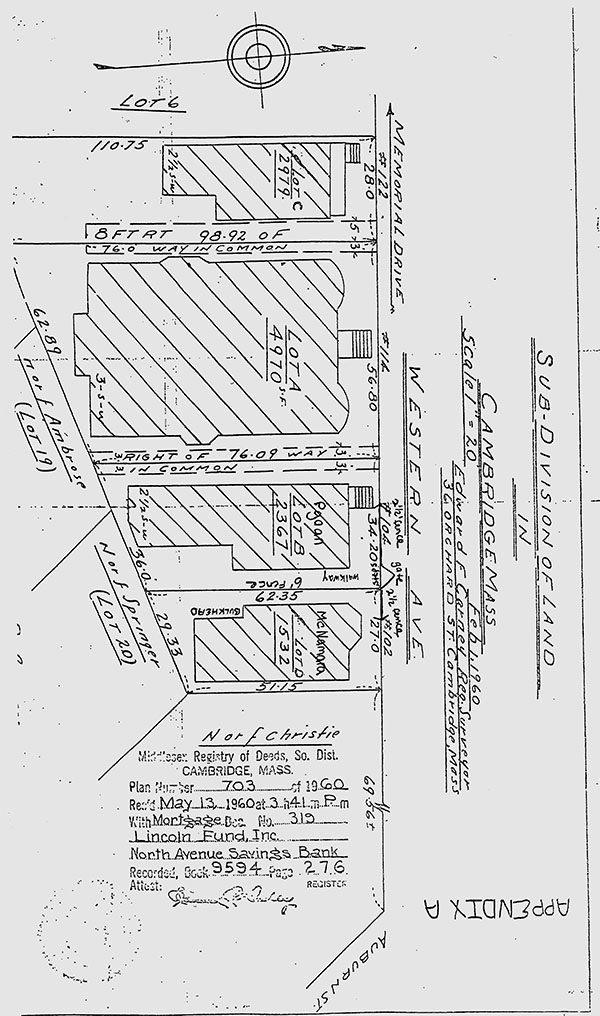 SUB-DIVISION OF LAND
IN
CAMBRIDGE MASS
Scale 1" = 20 Feb 1, 1960
Edward F Carney Reg. Surveyor
36 Orchard St. Cambridge, Mass
APPENDIX A
LOT 6
MEMORIAL DRIVE
WESTERN AVE
110.75
LOT C
2979
2½ S-W
28.0
#122
8 FT RT 98.92 OF
76.0 WAY IN COMMON
5
3
LOT A
4970 S.F.
3-S-W
#114
56.80
62.89
N or f Ambrose
(LOT 19)
RIGHT OF 76.09 WAY
3 IN COMMON
3
3
Pagan
LOT B
2367
2½ S-W
#106
34.20
2½' fence
gate
steps
walkway
6' Fence
62.35
36.0
29.33
N or f Springer
(LOT 20)
BULKHEAD
McNamara
LOT D
1532
2½ fence
27.0
#102
51.15
69.56±
AUBURN ST.
N or f Christie
Middlesex Registry of Deeds, So. Dist.
CAMBRIDGE, MASS.
Plan Number 703 of 1960
Rec'd May 13 1960 at 3 h 41 m P m
With Mortgage Doc. No. 319
Lincoln Fund, Inc.
North Avenue Savings Bank
Recorded, Book 9594 Page 276.
Attest:
REGISTER